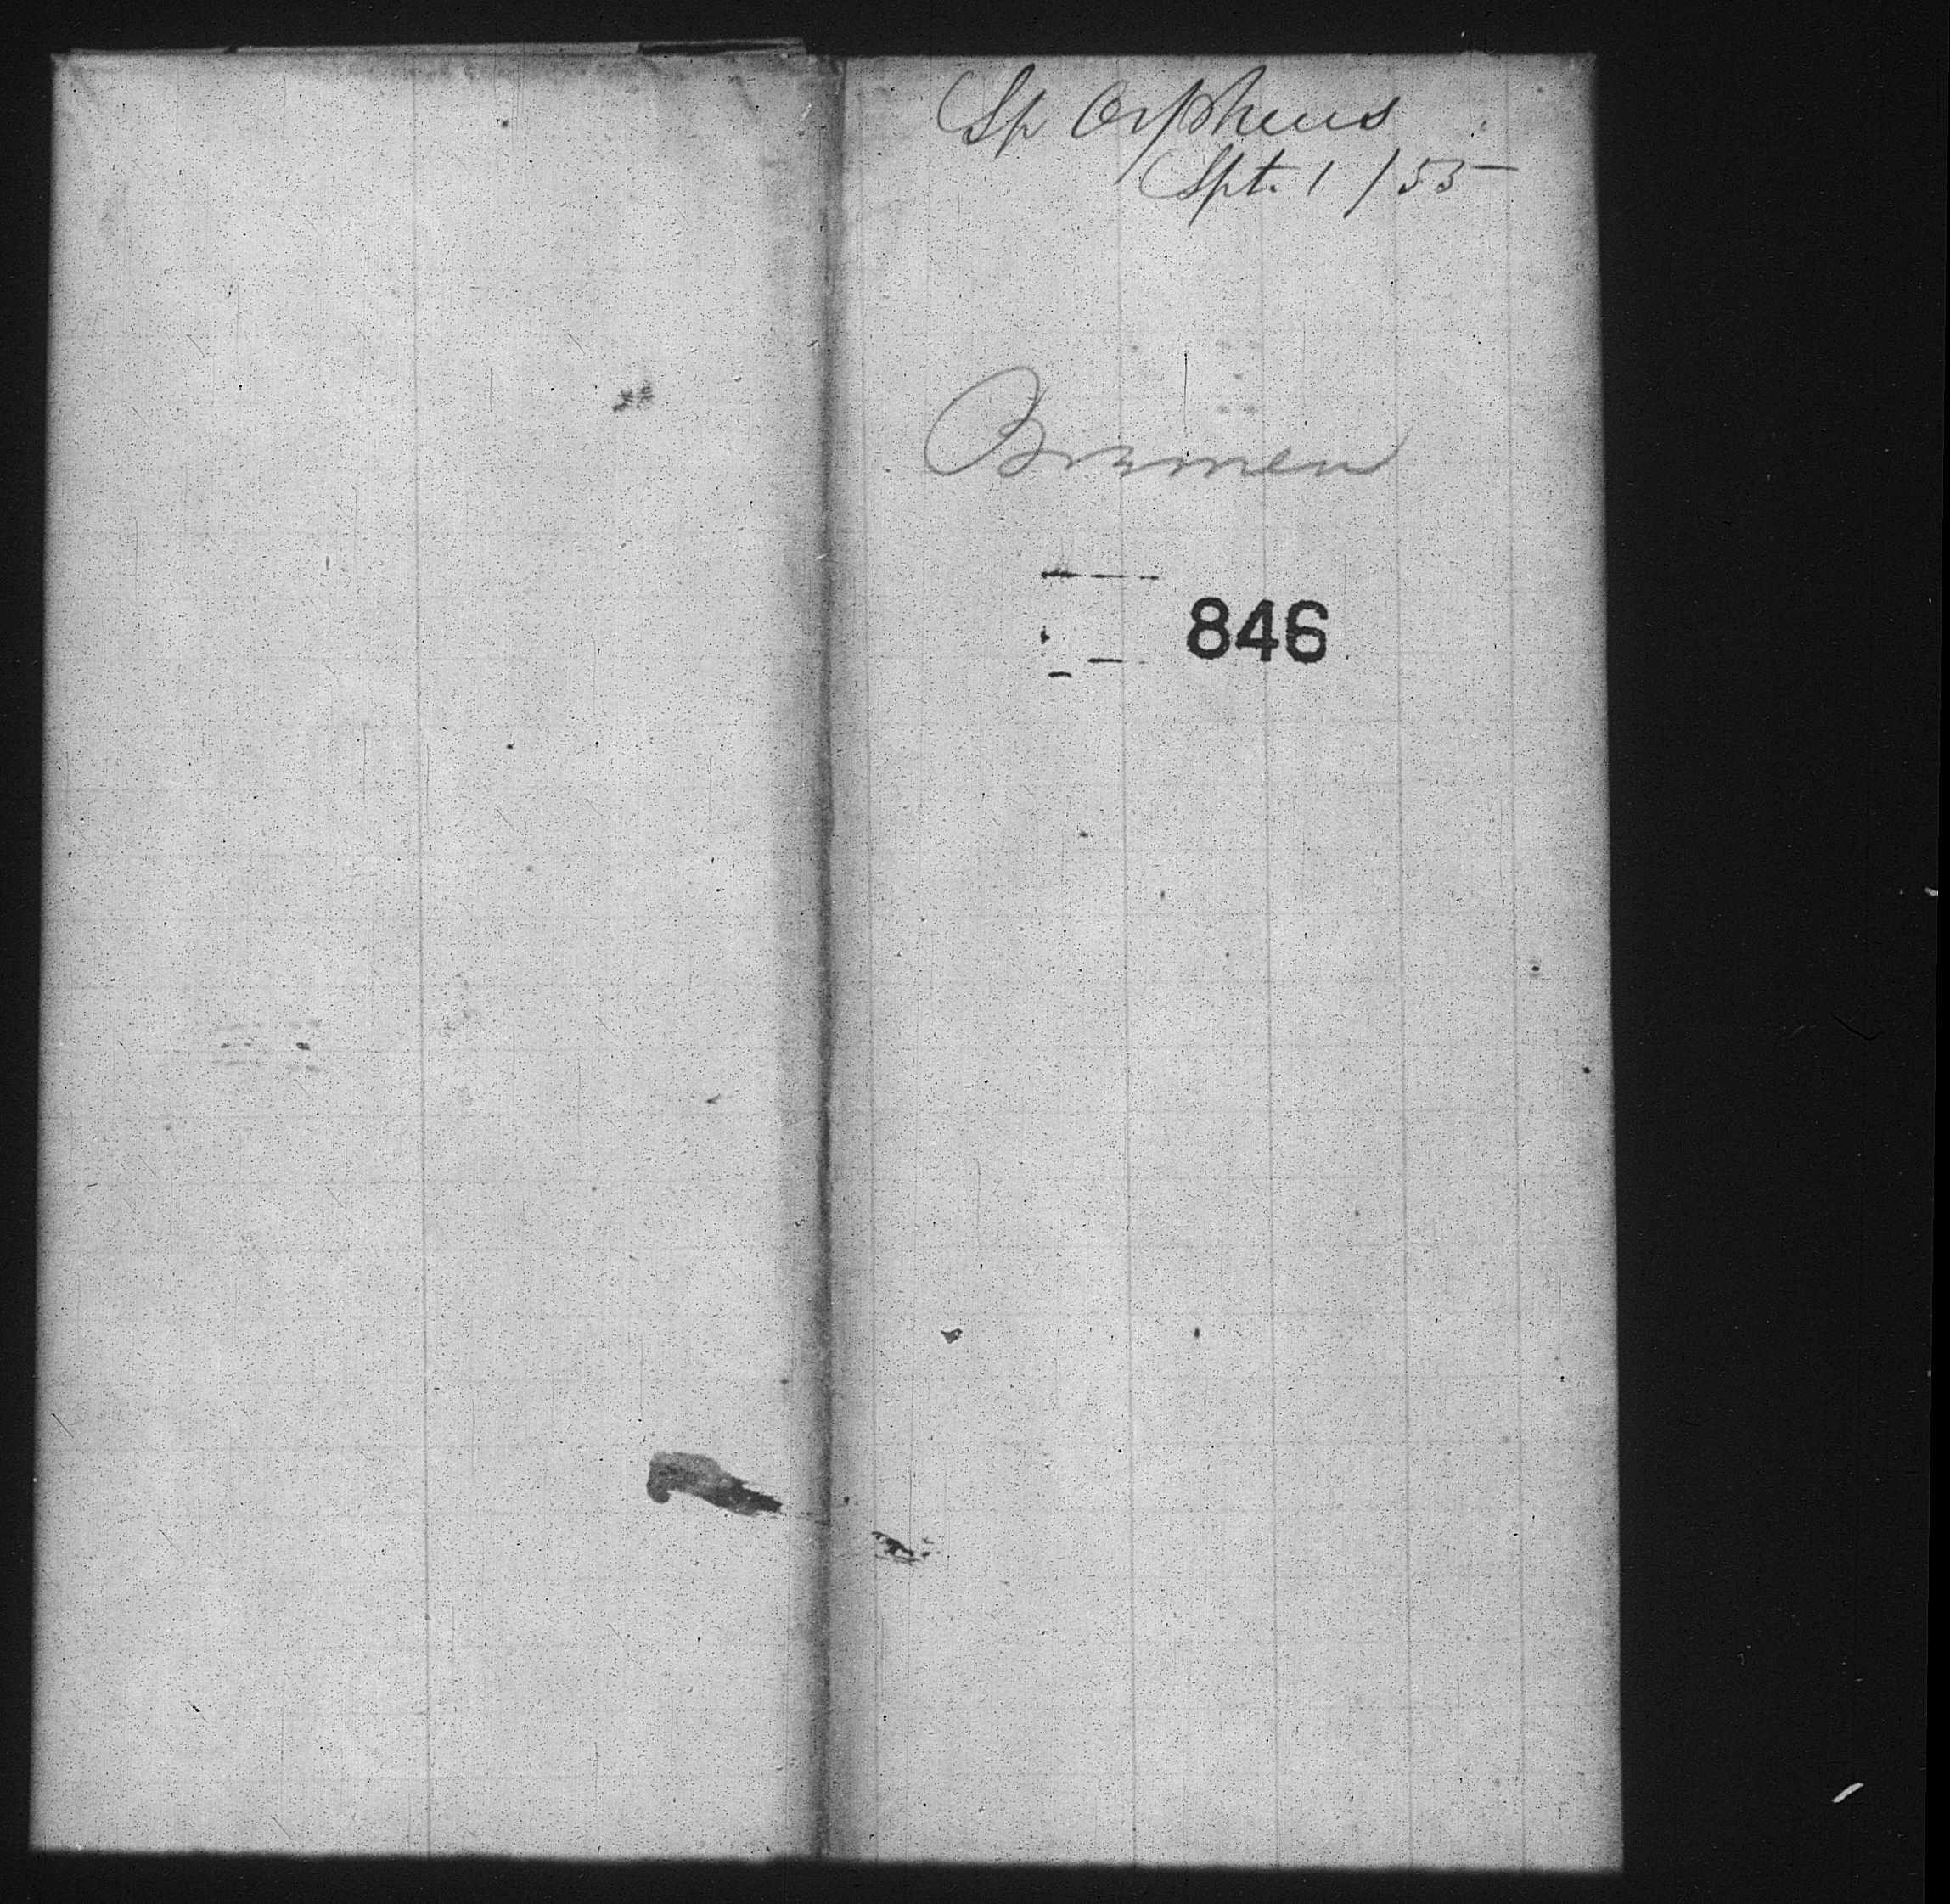 Sp Orpheus
Spt. 1 /55
Bremen
846